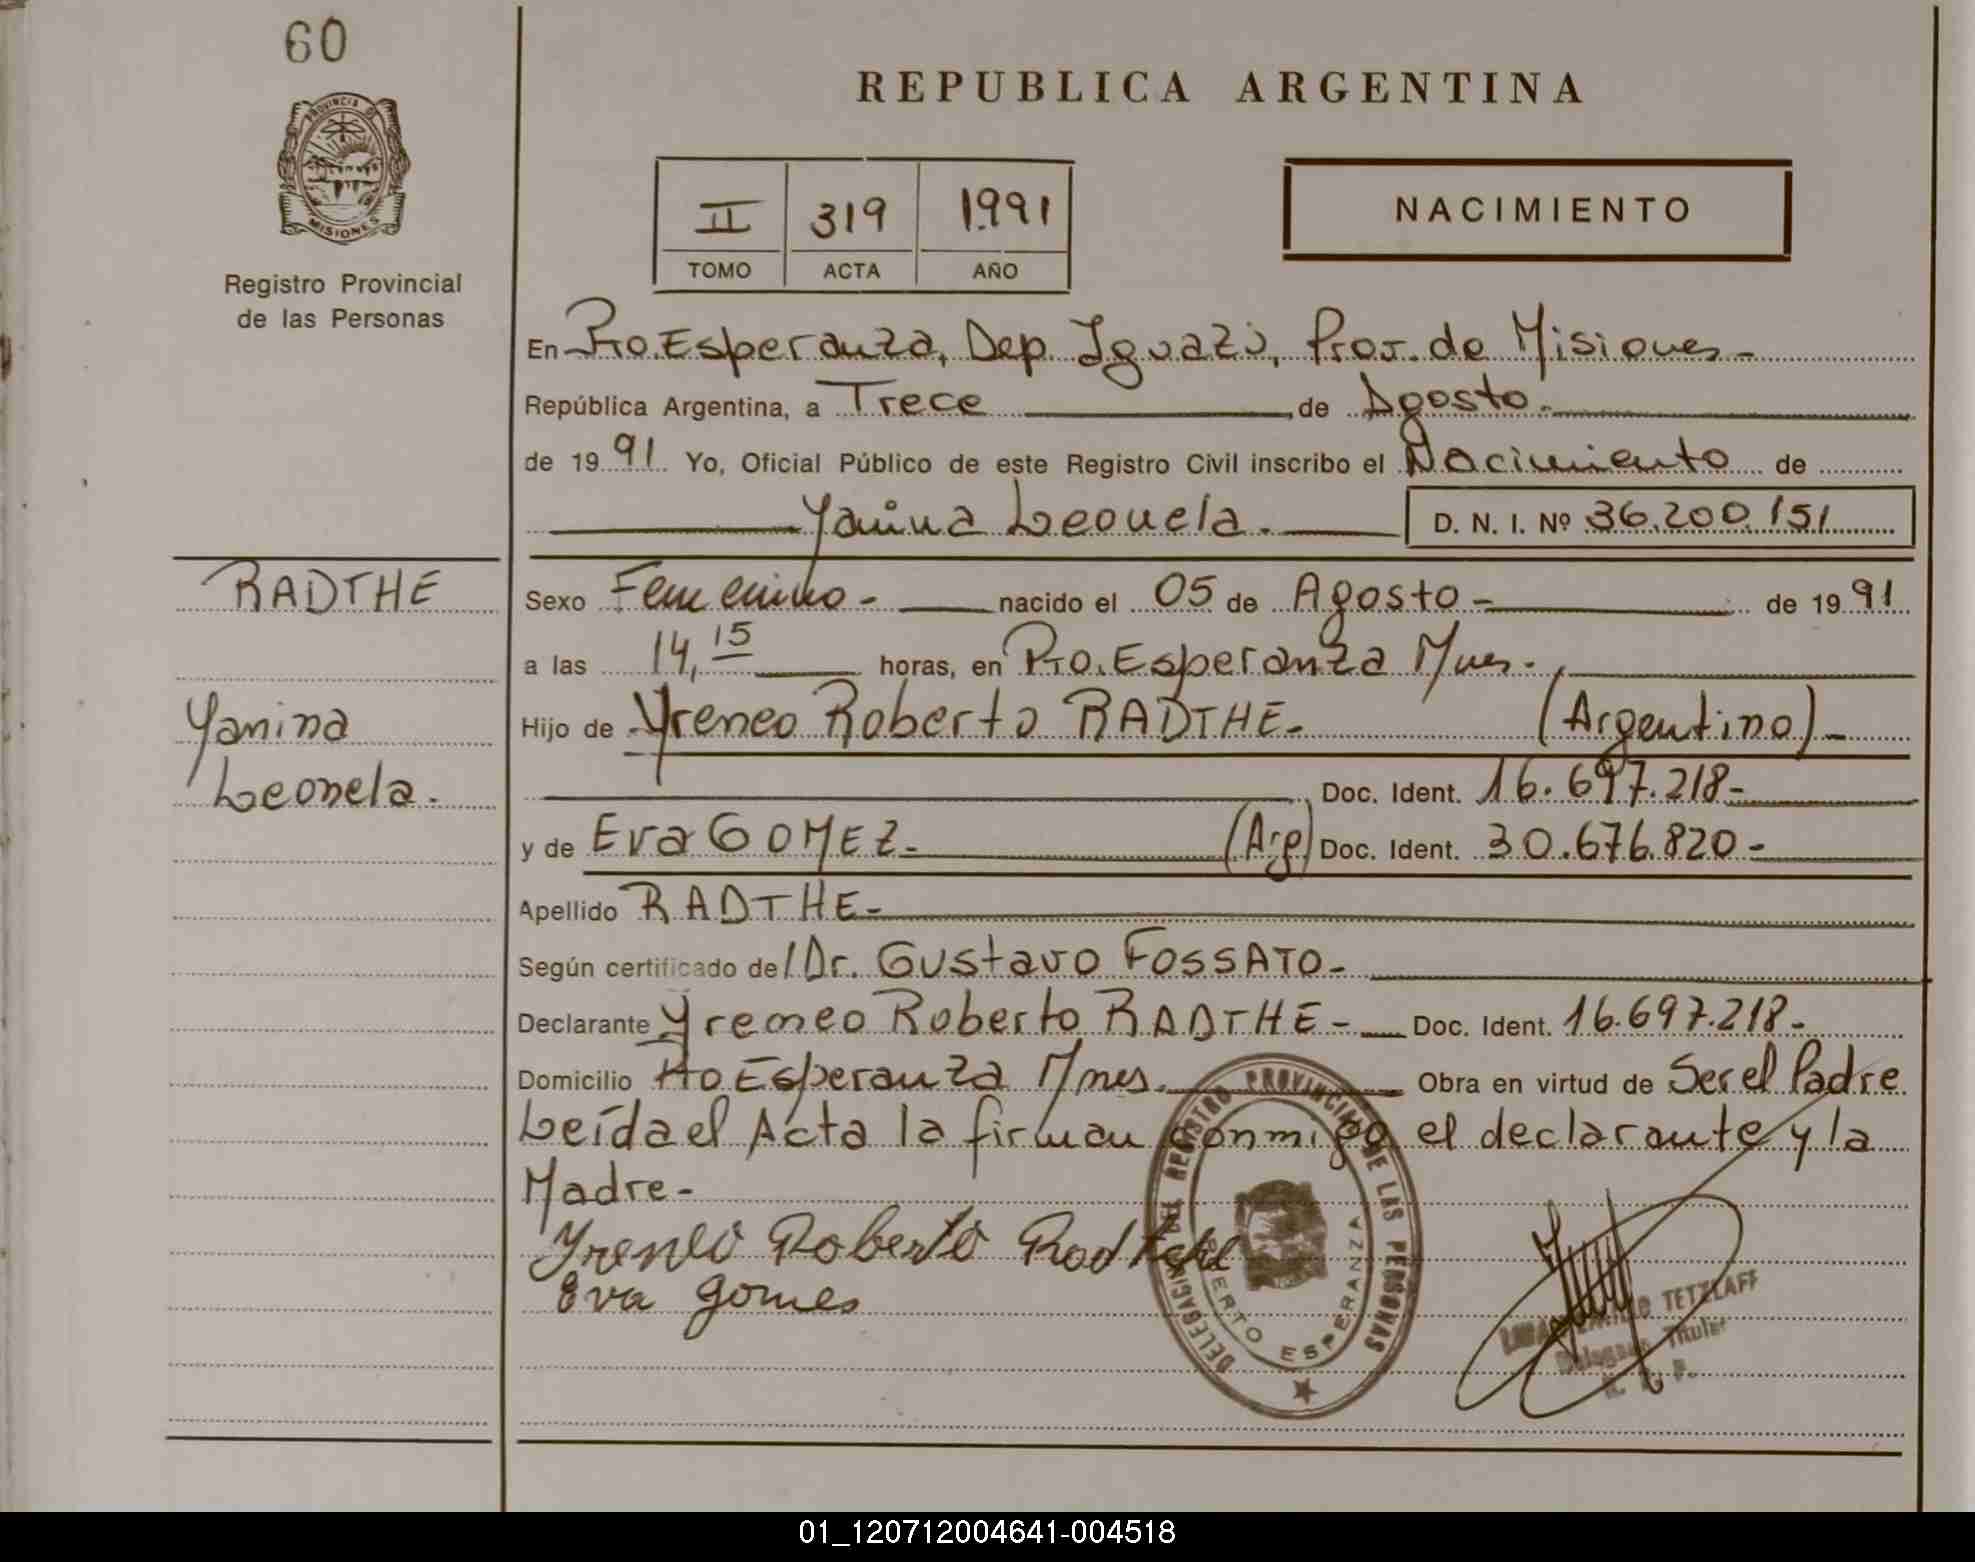 60
PROVINCIA DE
MISIONES
Registro Provincial
de las Personas
REPUBLICA ARGENTINA
II 319 1991
TOMO ACTA AÑO
NACIMIENTO
En Pto. Esperanza, Dep. Iguazú, Prov. de Misiones -
República Argentina, a Trece de Agosto.
de 1991 Yo, Oficial Público de este Registro Civil inscribo el Nacimiento de
Yanina Leonela. D. N. I. Nº 36.200.151
RADTHE
Yanina
Leonela.
Sexo Femenino - nacido el 05 de Agosto - de 1991
a las 14,15 horas, en Pto. Esperanza Mnes.
Hijo de Yreneo Roberto RADTHE- (Argentino)-
Doc. Ident. 16.697.218-
y de Eva GOMEZ- (Arg) Doc. Ident. 30.676.820-
Apellido RADTHE-
Según certificado del Dr. Gustavo FOSSATO-
Declarante Yreneo Roberto RADTHE- Doc. Ident. 16.697.218-
Domicilio Pto Esperanza Mnes. Obra en virtud de Ser el Padre
Leída el Acta la firman conmigo el declarante y la
Madre-
Yreneo Roberto Radthe
Eva gomes
DELEGACION DEL REGISTRO PROVINCIAL DE LAS PERSONAS
PUERTO ESPERANZA
TETZLAFF
Titular
01_120712004641-004518